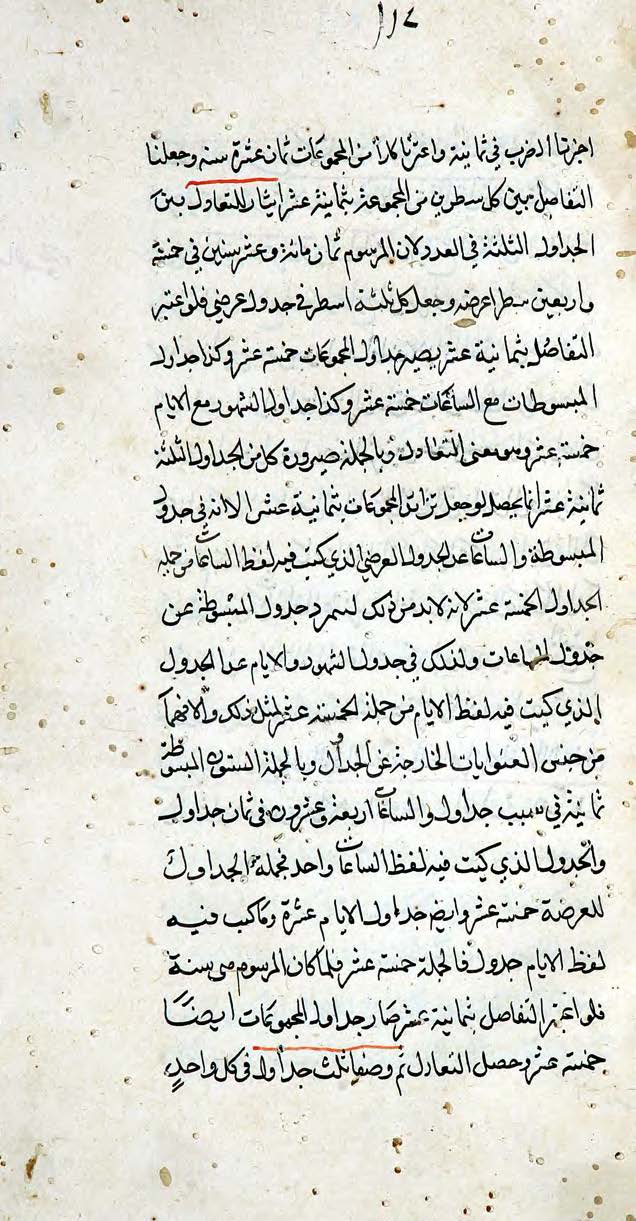 ١١٤
اجزنا الضرب في ثمانية واعتبرنا من المجموعات ثمان عشرة سنة وجعلنا
التفاضل بين كل سطرين من المجموعة بثمانية عشر ايثارا للتعادل بين
الجداول الثلثة في العدد لان المرسوم ثمان مائة وعشر سنين في خمسة
واربعين سطرا عرضه وجعل كل ثلثة اسطر في جدول عرضي فلو اعتبر
التفاضل بثمانية عشر يصير جداول المجموعات خمسة عشر وكذا جداول
المبسوطات مع الساعات خمسة عشر وكذا جداول الشهور مع الايام
خمسة عشر وهو معنى التعادل وبالجملة صيرورة كل من الجداول الثلثة
ثمانية عشر انما يحصل لو جعل تزايد المجموعات بثمانية عشر الا انه في جدول
المبسوطة والساعات عد الجدول العرضي الذي كتب فيه لفظ الساعات من جملة
الجداول الخمسة عشر لانه لابد من ذلك جدول المبسوطة عن
جدول الساعات ولذلك في جدول الشهور والايام عد الجدول
الذي كتب فيه لفظ الايام من جملة الخمسة عشر لمثل ذلك والا فهما
من جنس العنوانات الخارجة عن الجداول وبالجملة السنون المبسوطة
ثمانية في جداول والساعات اربعة وعشرون في ثمان جداول
والجدول الذي كتب فيه لفظ الساعات واحد فجملة الجداول
العرضة خمسة عشر وايضا جداول الايام عشرة وما كتب فيه
لفظ الايام جدول فالجملة خمسة عشر فلما كان المرسوم من سنة
فلو اعتبر التفاضل ثمانية عشر صار جداول المجموعات ايضا
خمسة عشر وحصل التعادل ثم وضعنا ثلث جداول في كل واحد